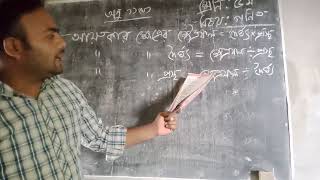 শ্রেণি: ৫ম
বিষয়: গণিত
আয়তাকার ক্ষেত্রের ক্ষেত্রফল = দৈর্ঘ্য × প্রস্থ
" " দৈর্ঘ্য = ক্ষেত্রফল ÷ প্রস্থ
" " প্রস্থ = ক্ষেত্রফল ÷ দৈর্ঘ্য